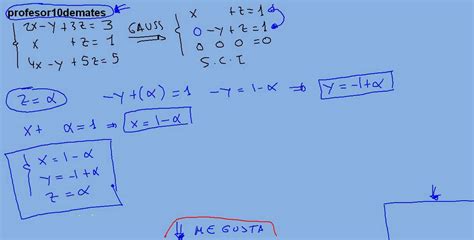 profesor10demates
2x-y+3z=3
x +z=1
4x-y+5z=5
GAUSS
x +z=1
0-y+z=1
0 0 0=0
S.C.I
z=α -y+(α)=1 -y=1-α ⇒ y=-1+α
x+ α=1 ⇒ x=1-α
x=1-α
y=-1+α
z=α
ME GUSTA